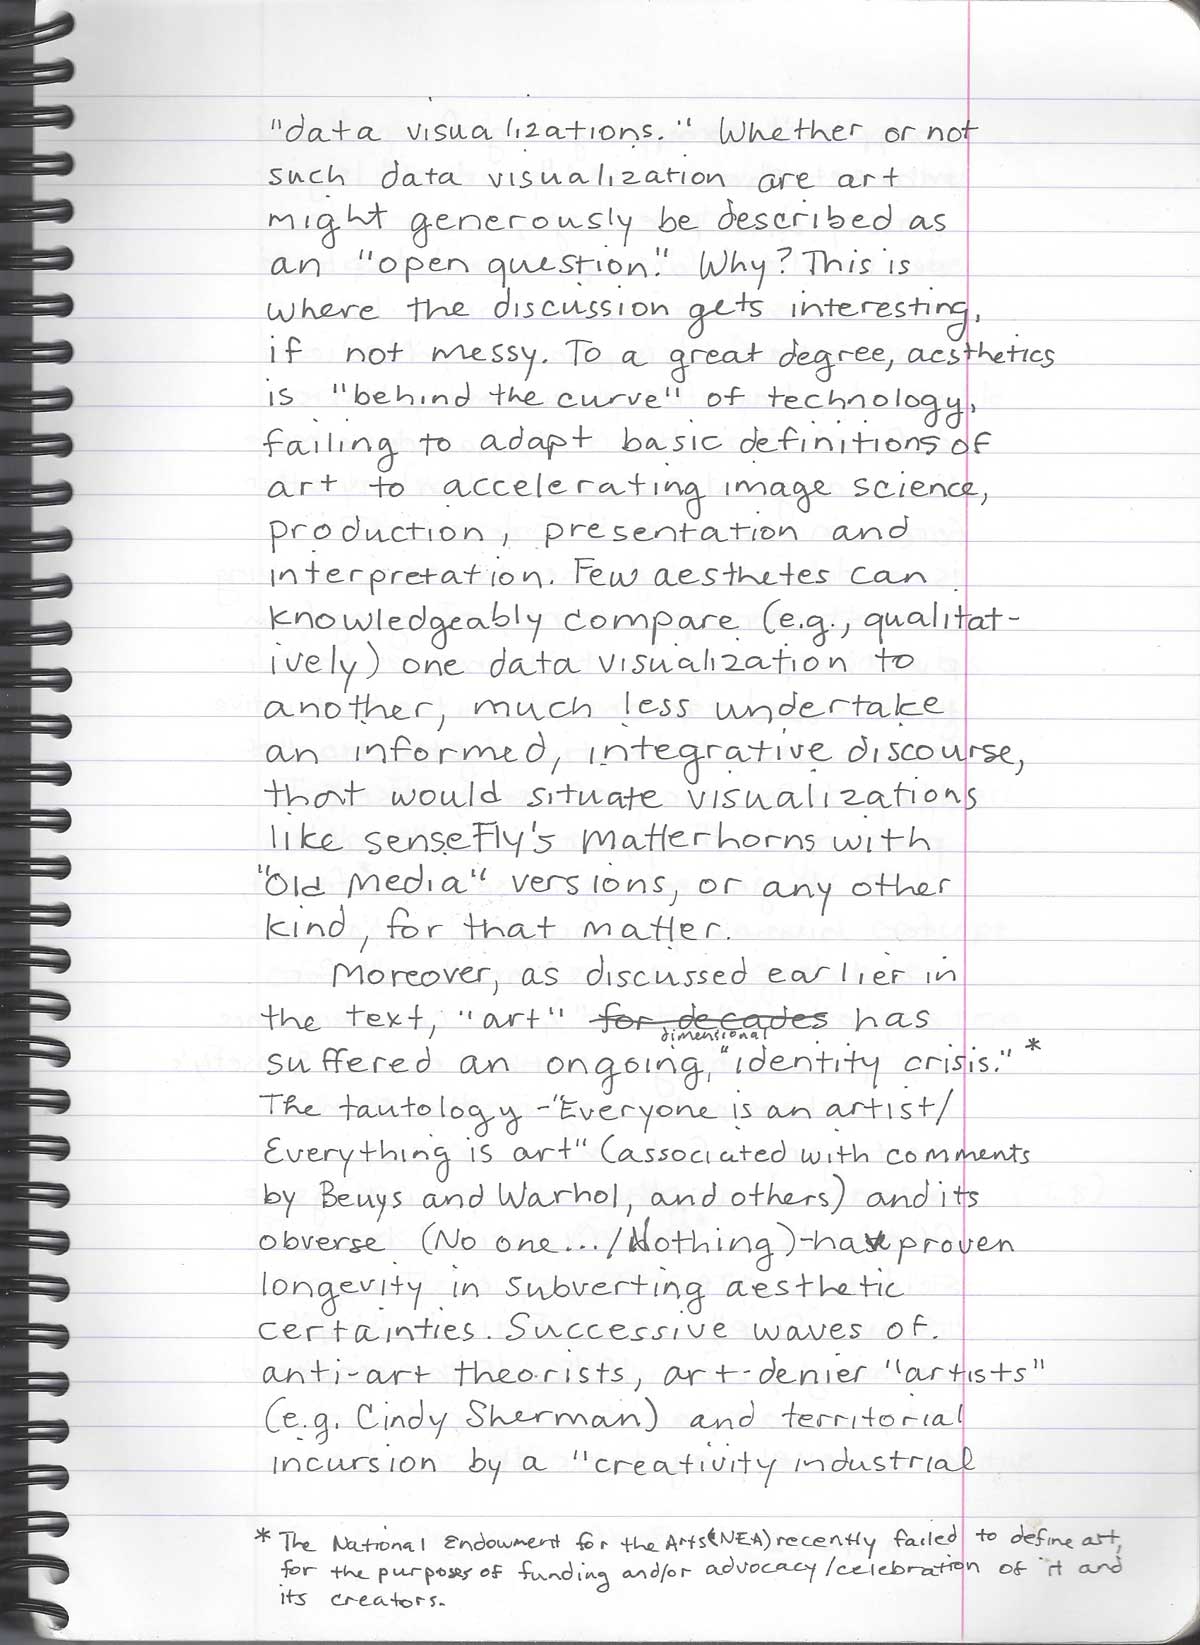 "data visualizations." Whether or not
such data visualization are art
might generously be described as
an "open question." Why? This is
where the discussion gets interesting,
if not messy. To a great degree, aesthetics
is "behind the curve" of technology,
failing to adapt basic definitions of
art to accelerating image science,
production, presentation and
interpretation. Few aesthetes can
knowledgeably compare (e.g., qualitat-
ively) one data visualization to
another, much less undertake
an informed, integrative discourse,
that would situate visualizations
like senseFly's Matterhorns with
"Old Media" versions, or any other
kind, for that matter.
Moreover, as discussed earlier in
the text, "art" for decades has
dimensional
suffered an ongoing, "identity crisis." *
The tautology -"Everyone is an artist/
Everything is art" (associated with comments
by Beuys and Warhol, and others) and its
obverse (No one.../Nothing)-have proven
longevity in subverting aesthetic
certainties. Successive waves of
anti-art theorists, art-denier "artists"
(e.g. Cindy Sherman) and territorial
incursion by a "creativity industrial
* The National Endowment for the Arts (NEA) recently failed to define art,
for the purposes of funding and/or advocacy/celebration of it and
its creators.